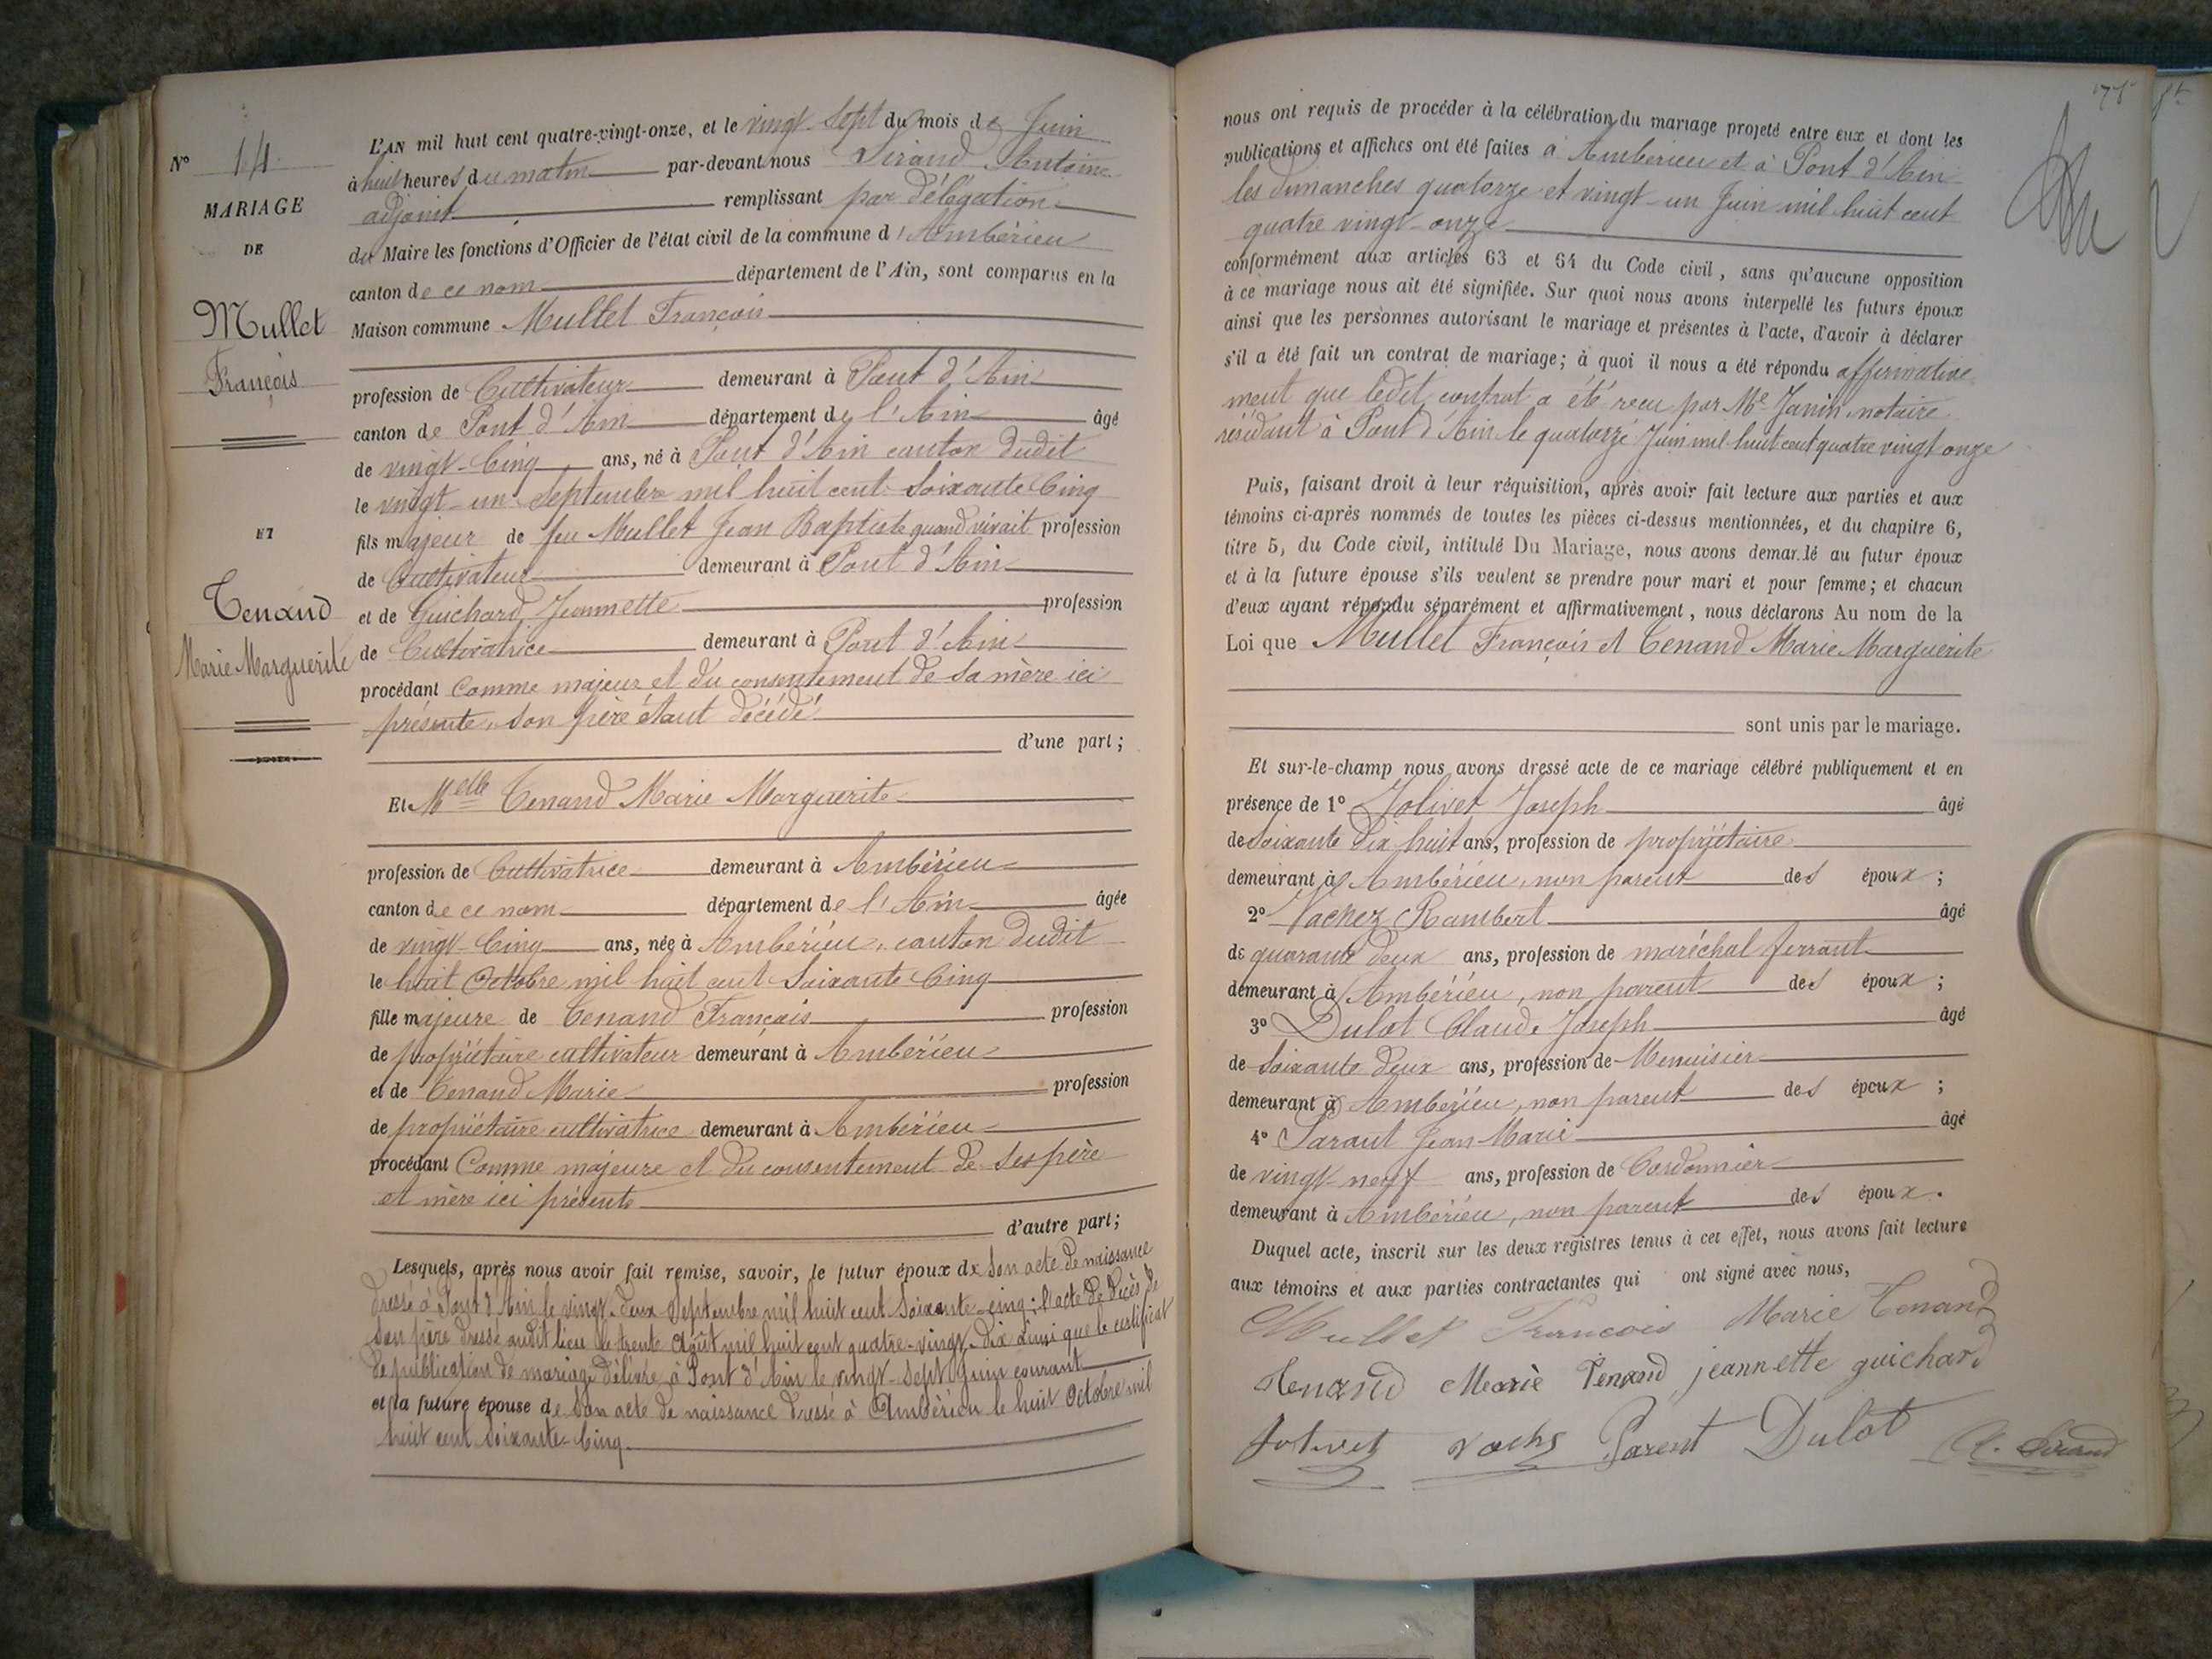 N° 14
MARIAGE
DE
Mullet
François
ET
Tenand
Marie Marguerite
L'AN mil huit cent quatre-vingt-onze, et le vingt-Sept du mois de Juin
à huit heures du matin par-devant nous Sirand Antoine
adjoint remplissant par délégation
du Maire les fonctions d'Officier de l'état civil de la commune d'Ambérieu
canton de ce nom département de l'Ain, sont comparus en la
Maison commune Mullet François
profession de Cultivateur demeurant à Pont d'Ain
canton de Pont d'Ain département de l'Ain âgé
de vingt-Cinq ans, né à Pont d'Ain canton dudit
le vingt-un Septembre mil huit cent Soixante Cinq
fils majeur de feu Mullet Jean Baptiste quand vivait profession
de Cultivateur demeurant à Pont d'Ain
et de Guichard Jeannette profession
de Cultivatrice demeurant à Pont d'Ain
procédant Comme majeur et du consentement de sa mère ici
présente, son père étant décédé
d'une part;
Et Melle Tenand Marie Marguerite
profession de Cultivatrice demeurant à Ambérieu
canton de ce nom département de l'Ain âgée
de vingt-Cinq ans, née à Ambérieu, canton dudit
le huit Octobre mil huit cent Soixante Cinq
fille majeure de Tenand François profession
de propriétaire cultivateur demeurant à Ambérieu
et de Tenand Marie profession
de propriétaire cultivatrice demeurant à Ambérieu
procédant Comme majeure et du consentement de ses père
et mère ici présents
d'autre part;
Lesquels, après nous avoir fait remise, savoir, le futur époux de Son acte de naissance
dressé à Pont d'Ain le vingt-deux Septembre mil huit cent Soixante-cinq; l'acte de décès de
son père dressé audit lieu le trente Août mil huit cent quatre-vingt-dix ainsi que le certificat
de publication de mariage délivré à Pont d'Ain le vingt-Sept Juin courant
et la future épouse de Son acte de naissance dressé à Ambérieu le huit Octobre mil
huit cent Soixante-Cinq.
nous ont requis de procéder à la célébration du mariage projeté entre eux et dont les
publications et affiches ont été faites à Ambérieu et à Pont d'Ain
les dimanches quatorze et vingt-un Juin mil huit cent
quatre vingt-onze
conformément aux articles 63 et 64 du Code civil, sans qu'aucune opposition
à ce mariage nous ait été signifiée. Sur quoi nous avons interpellé les futurs époux
ainsi que les personnes autorisant le mariage et présentes à l'acte, d'avoir à déclarer
s'il a été fait un contrat de mariage; à quoi il nous a été répondu affirmative
ment que ledit contrat a été reçu par Me Janin, notaire
résidant à Pont d'Ain le quatorze Juin mil huit cent quatre vingt onze
Puis, faisant droit à leur réquisition, après avoir fait lecture aux parties et aux
témoins ci-après nommés de toutes les pièces ci-dessus mentionnées, et du chapitre 6,
titre 5, du Code civil, intitulé Du Mariage, nous avons demandé au futur époux
et à la future épouse s'ils veulent se prendre pour mari et pour femme; et chacun
d'eux ayant répondu séparément et affirmativement, nous déclarons Au nom de la
Loi que Mullet François et Tenand Marie Marguerite
sont unis par le mariage.
Et sur-le-champ nous avons dressé acte de ce mariage célébré publiquement et en
présence de 1° Jolivet Joseph âgé
de Soixante dix huit ans, profession de propriétaire
demeurant à Ambérieu, non parent des époux;
2° Vachez Rambert âgé
de quarante deux ans, profession de maréchal ferrant
demeurant à Ambérieu, non parent des époux;
3° Dulot Claude Joseph âgé
de Soixante deux ans, profession de Menuisier
demeurant à Ambérieu, non parent des époux;
4° Jean Marie âgé
de vingt-neuf ans, profession de Cordonnier
demeurant à Ambérieu, non parent des époux.
Duquel acte, inscrit sur les deux registres tenus à cet effet, nous avons fait lecture
aux témoins et aux parties contractantes qui ont signé avec nous,
Mullet François Marie Tenand
Tenand Marie Tenand jeannette guichard
Jolivet Parent Dulot A. Sirand